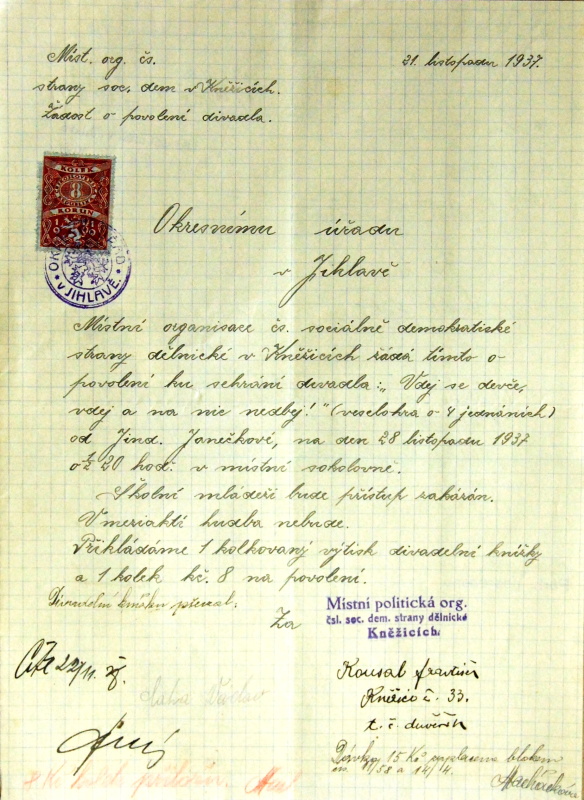 Míst. org. čs.
strany soc. dem v Kněžicích.
Žádost o povolení divadla.
21. listopadu 1937.
KOLEK
8
KORUN
V JIHLAVĚ.
Okresnímu úřadu
v Jihlavě
Místní organisace čs. sociálně demokratické
strany dělnické v Kněžicích žádá tímto o
povolení ku sehrání divadla: „Vdej se devče,
vdej a na nic nedbej!" (veselohra o 4 jednáních)
od Jind. Janečkové, na den 28 listopadu 1937
o ½ 20 hod: v místní sokolovně.
Školní mládeži bude přístup zakázán.
V meziaktí hudba nebude.
Přikládáme 1 kolkovaný výtisk divadelní knížky
a 1 kolek kč. 8 na povolení.
Divadelní knížku převzal:
Za
Místní politická org.
čsl. soc. dem. strany dělnické
Kněžicích
22/11.
Kousal František
Kněžice č. 33.
t. č. důvěrník
8 Kč kolek přiložen.
Dávka 15 Kč zaplacena blokem